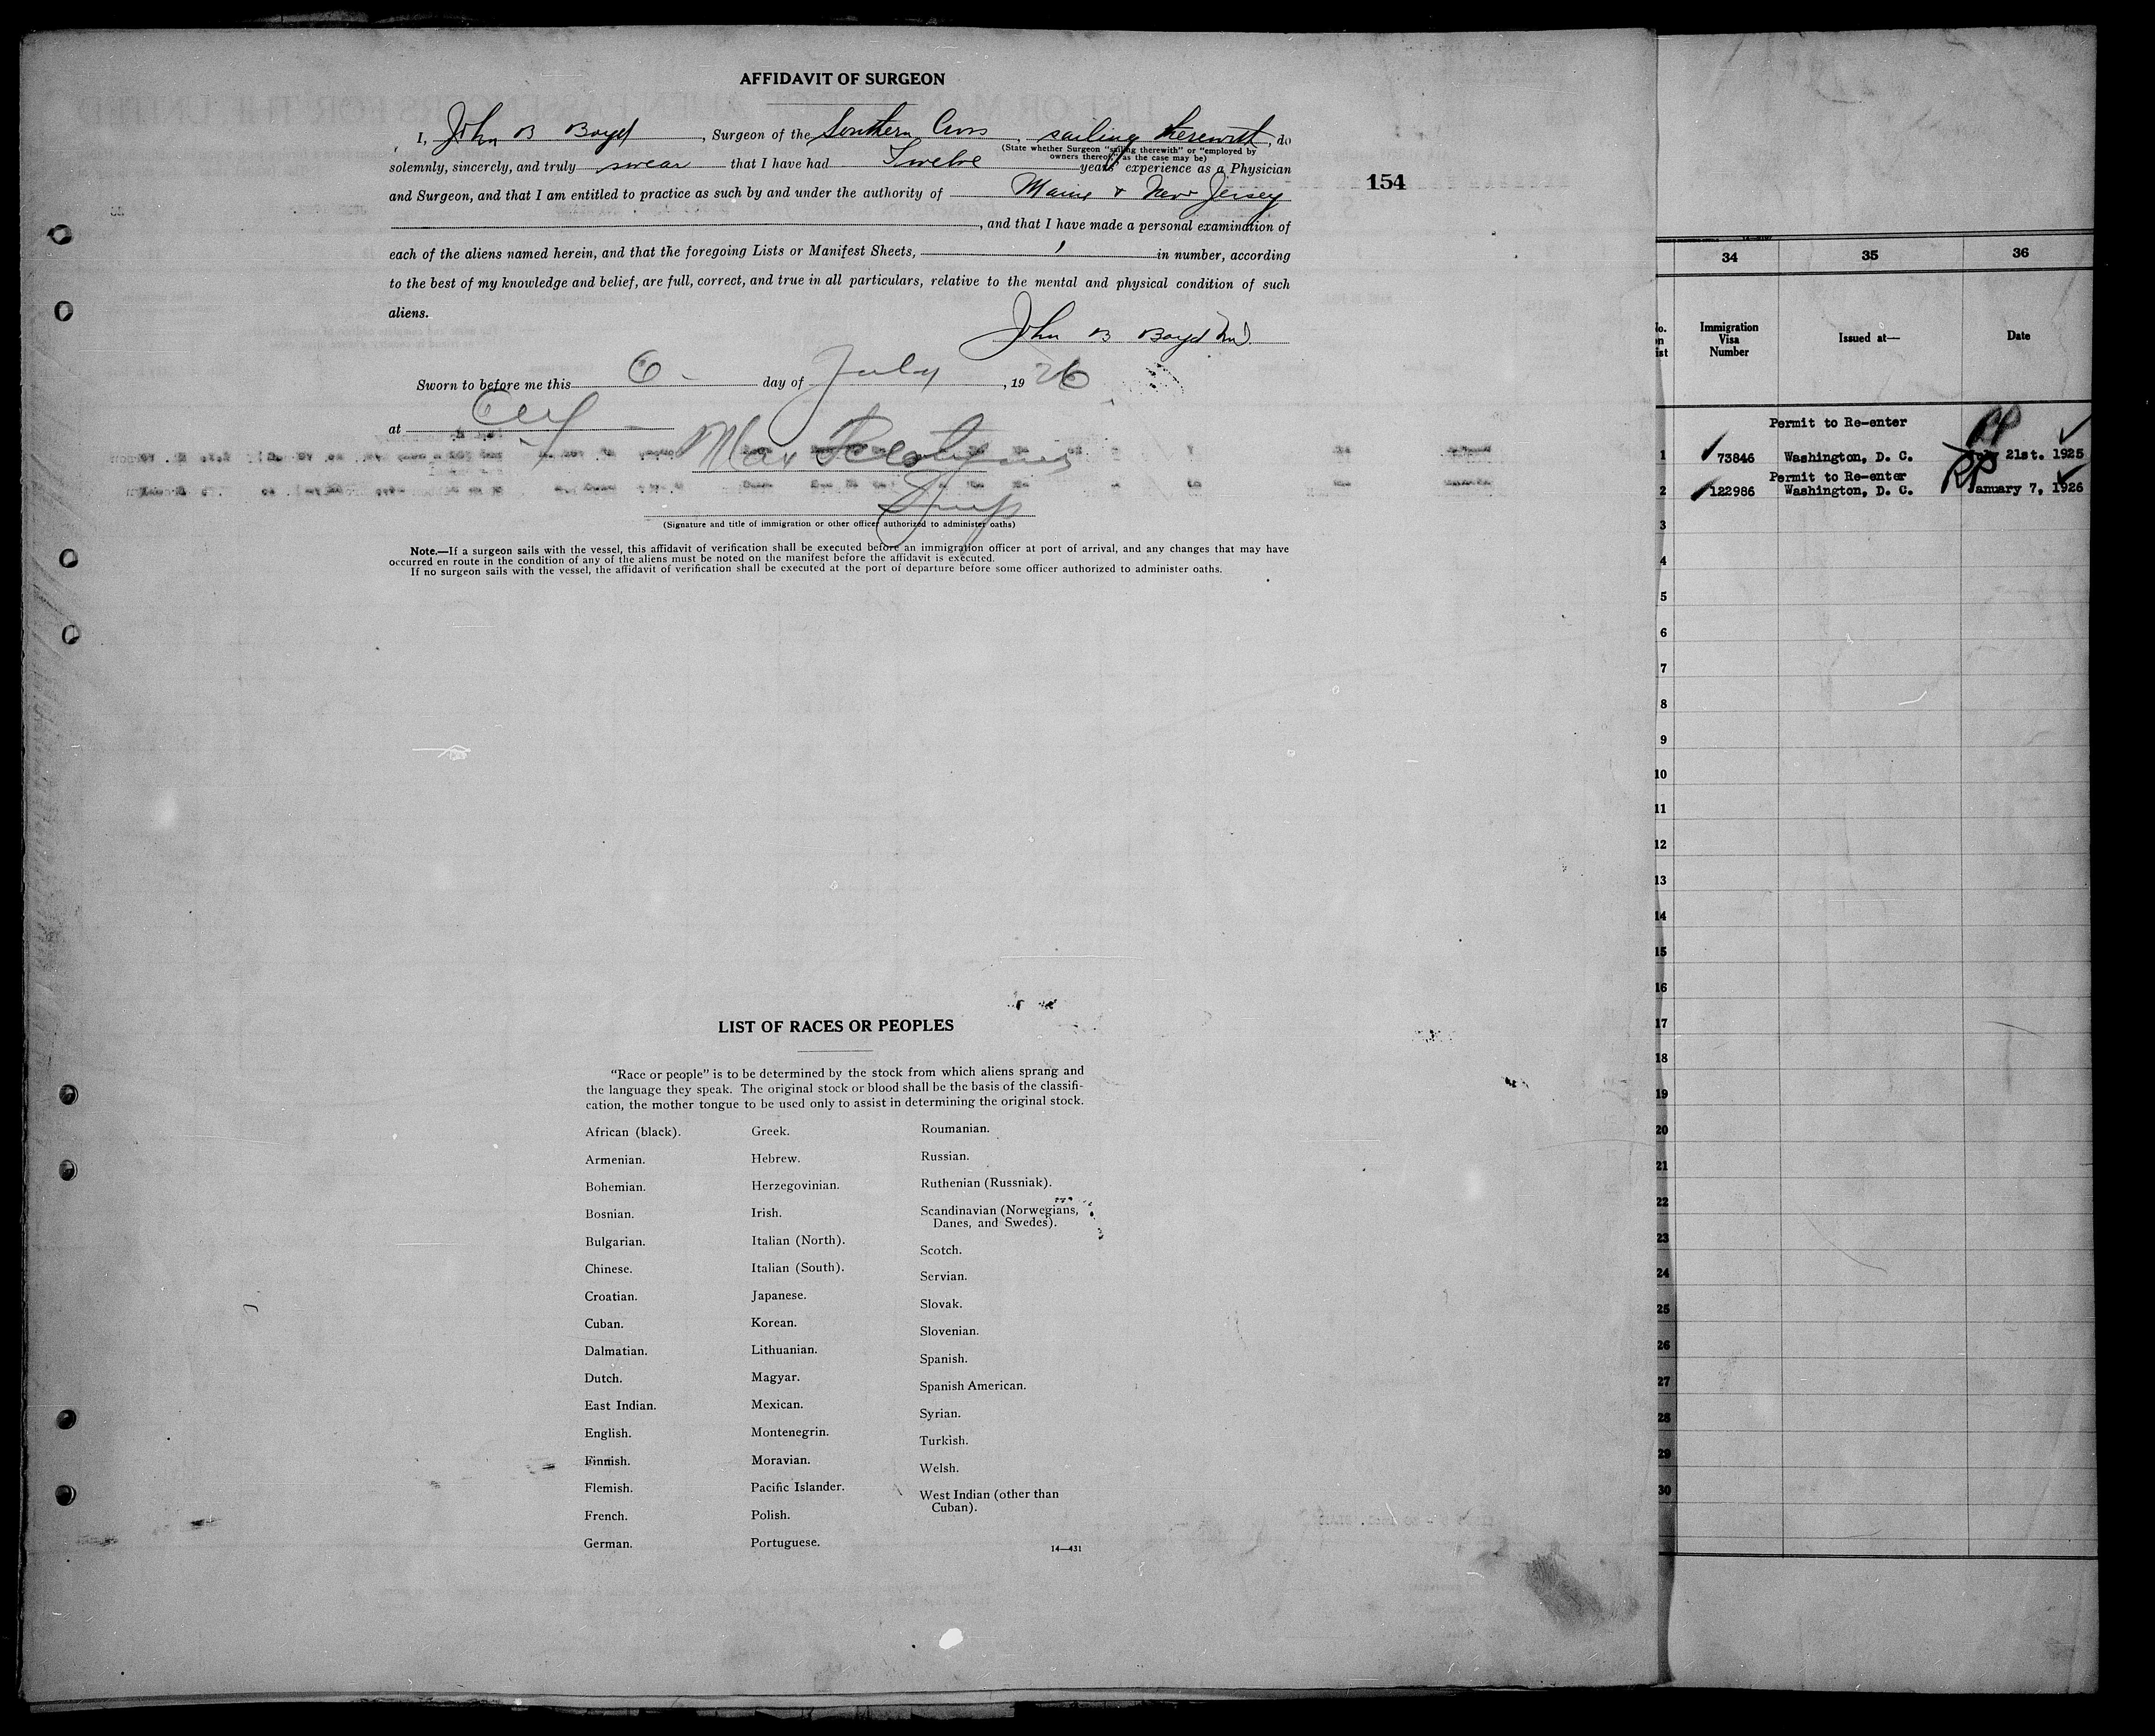 AFFIDAVIT OF SURGEON
I, John B Boyd, Surgeon of the Southern Cross, sailing therewith, do
(State whether Surgeon "sailing therewith" or "employed by
owners thereof," as the case may be)
solemnly, sincerely, and truly swear that I have had Twelve years' experience as a Physician
and Surgeon, and that I am entitled to practice as such by and under the authority of Maine & New Jersey
, and that I have made a personal examination of
each of the aliens named herein, and that the foregoing Lists or Manifest Sheets, 1 in number, according
to the best of my knowledge and belief, are full, correct, and true in all particulars, relative to the mental and physical condition of such
aliens.
John B Boyd M.D.
Sworn to before me this 6 day of July, 1926
at
Max
Insp
(Signature and title of immigration or other officer authorized to administer oaths)
Note.—If a surgeon sails with the vessel, this affidavit of verification shall be executed before an immigration officer at port of arrival, and any changes that may have
occurred en route in the condition of any of the aliens must be noted on the manifest before the affidavit is executed.
If no surgeon sails with the vessel, the affidavit of verification shall be executed at the port of departure before some officer authorized to administer oaths.
LIST OF RACES OR PEOPLES
"Race or people" is to be determined by the stock from which aliens sprang and
the language they speak. The original stock or blood shall be the basis of the classifi-
cation, the mother tongue to be used only to assist in determining the original stock.
African (black).
Armenian.
Bohemian.
Bosnian.
Bulgarian.
Chinese.
Croatian.
Cuban.
Dalmatian.
Dutch.
East Indian.
English.
Finnish.
Flemish.
French.
German.
Greek.
Hebrew.
Herzegovinian.
Irish.
Italian (North).
Italian (South).
Japanese.
Korean.
Lithuanian.
Magyar.
Mexican.
Montenegrin.
Moravian.
Pacific Islander.
Polish.
Portuguese.
Roumanian.
Russian.
Ruthenian (Russniak).
Scandinavian (Norwegians,
Danes, and Swedes).
Scotch.
Servian.
Slovak.
Slovenian.
Spanish.
Spanish American.
Syrian.
Turkish.
Welsh.
West Indian (other than
Cuban).
14—431
154
34 35 36
Immigration
Visa
Number
Issued at—
Date
Permit to Re-enter
1 73846 Washington, D. C. 21st. 1925
Permit to Re-enter
2 122986 Washington, D. C. January 7, 1926
3
4
5
6
7
8
9
10
11
12
13
14
15
16
17
18
19
20
21
22
23
24
25
26
27
28
29
30